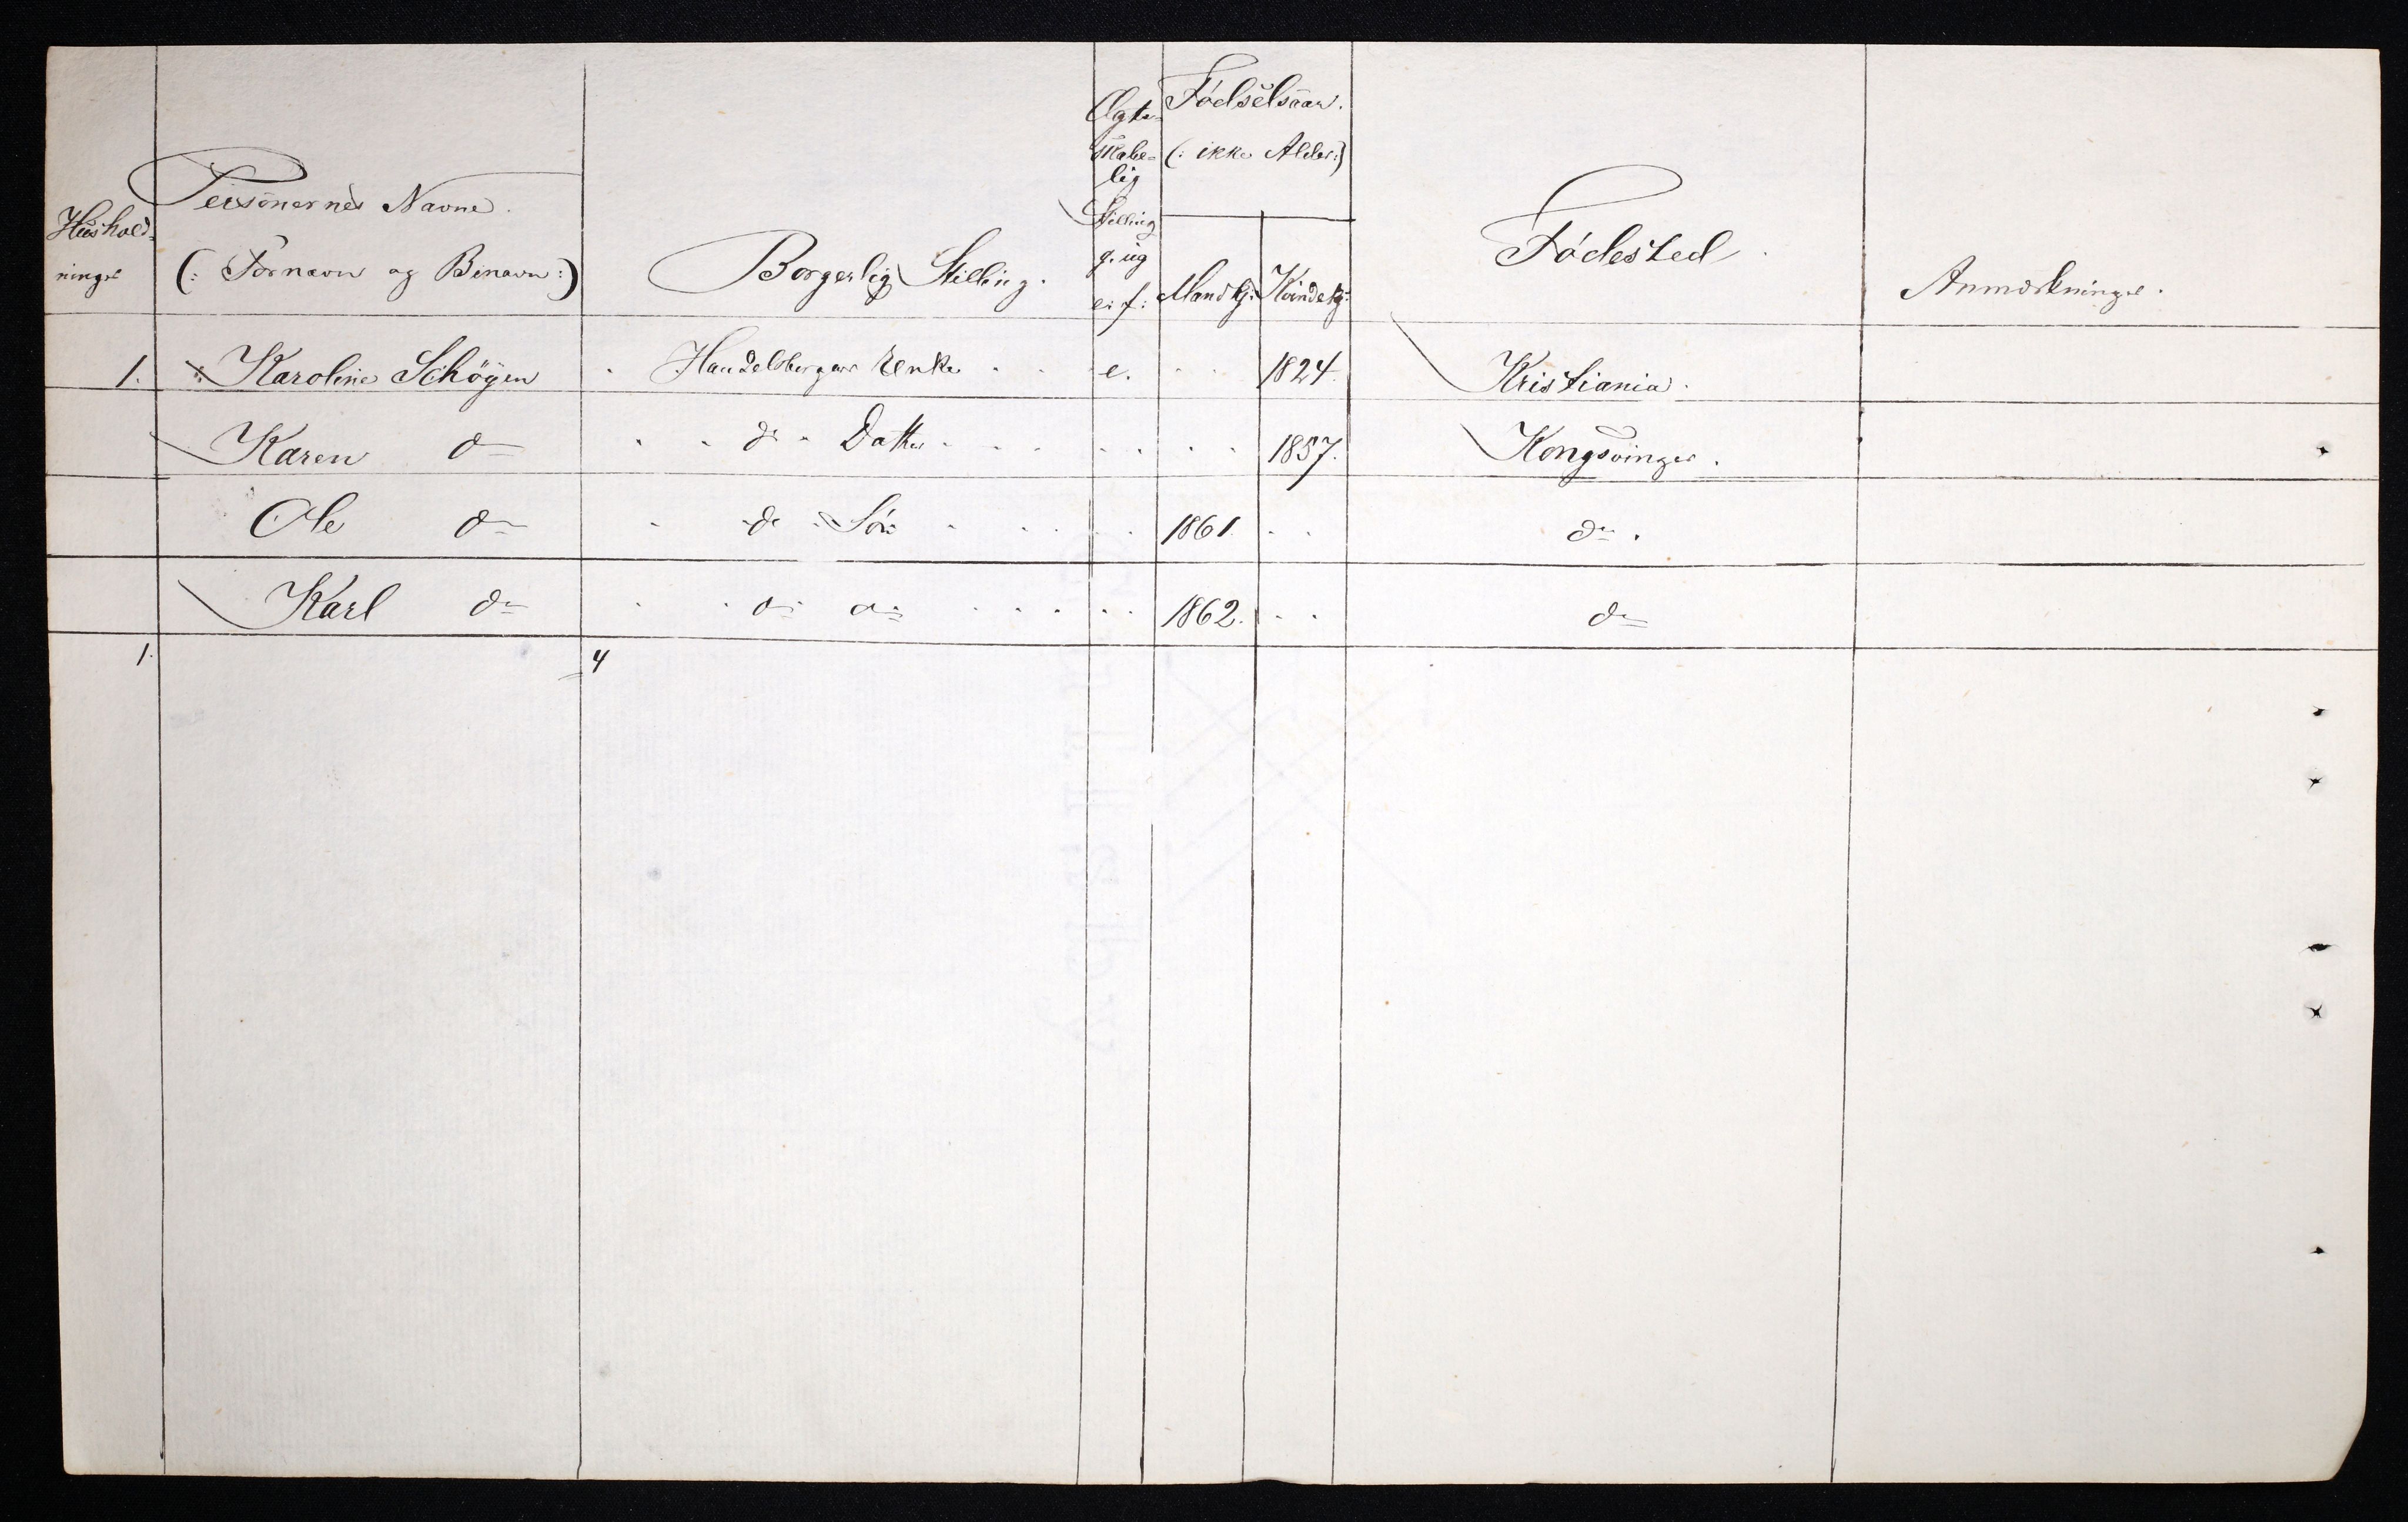 Hushold-
ninger
Personernes Navne.
(: Fornavn og Binavn :)
Borgerlig Stilling.
Ægte-
skabe-
lig
Stilling
g. ug
e. f.
Födselsaar.
(: ikke Alder :)
Mandkj: Kvindekj:
Födested.
Anmærkninger.
1. Karoline Schögen Handelsborgers Enke e. 1824. Kristiania.
Karen do do Datter 1857. Kongsvinger.
Ole do do Sön 1861. do.
Karl do do do 1862. do
1. 4